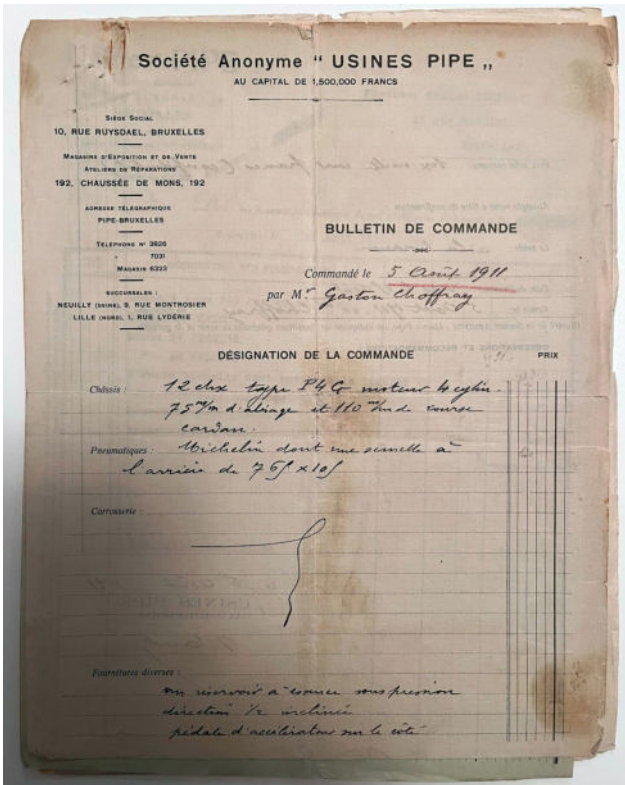 Société Anonyme “ USINES PIPE „
AU CAPITAL DE 1,500,000 FRANCS
SIÈGE SOCIAL
10, RUE RUYSDAEL, BRUXELLES
MAGASINS D'EXPOSITION ET DE VENTE
ATELIERS DE RÉPARATIONS
192, CHAUSSÉE DE MONS, 192
ADRESSE TÉLÉGRAPHIQUE
PIPE-BRUXELLES
TÉLÉPHONE Nº 3626
» 7031
MAGASIN 6323
SUCCURSALES :
NEUILLY (SEINE), 9, RUE MONTROSIER
LILLE (NORD), 1, RUE LYDÉRIE
BULLETIN DE COMMANDE
Commandé le 5 Août 1911
par Mr Gaston Choffray
DÉSIGNATION DE LA COMMANDE PRIX
Châssis : 12 chx type P4G moteur 4 cylin.
75 m/m d'alésage et 110 m/m de course
cardan.
Pneumatiques : Michelin dont une semelle à
l'arrière de 765 x 105
Carrosserie :
Fournitures diverses :
un réservoir à essence sous pression
direction 1/2 inclinée
pédale d'accélérateur sur le côté